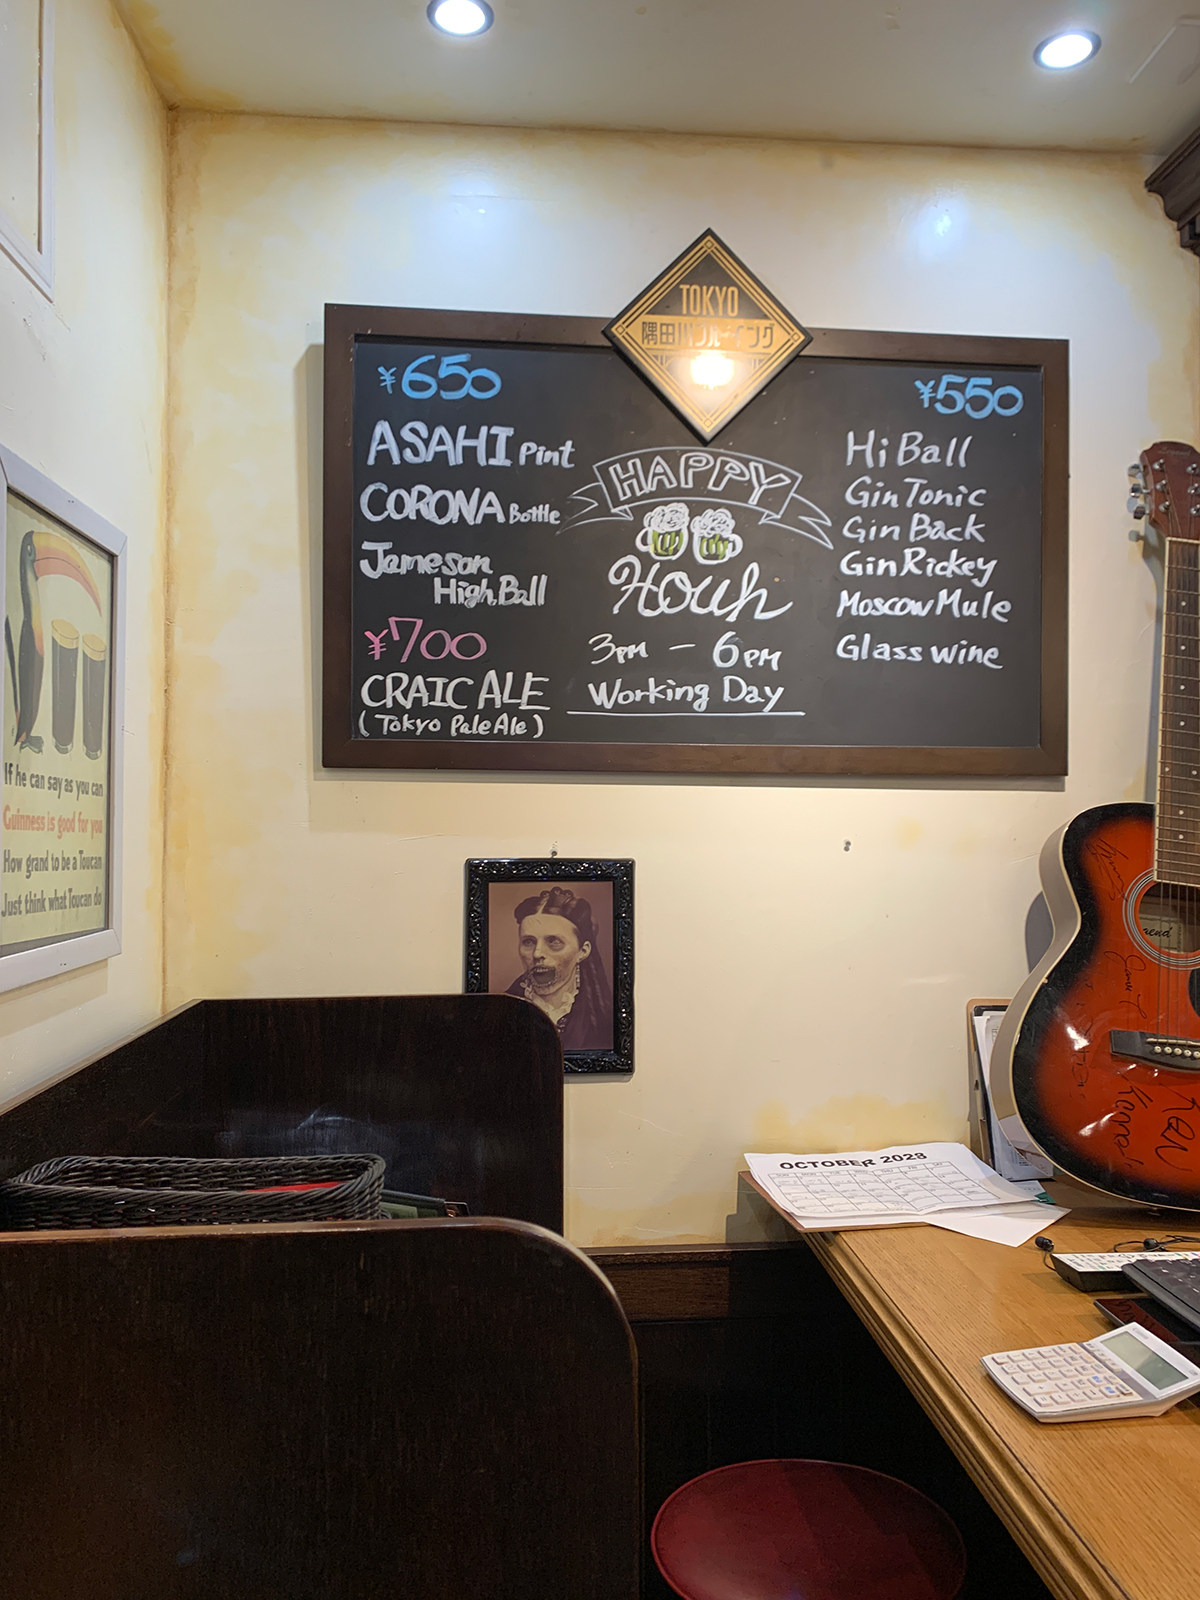 TOKYO
隅田川ブルーイング
¥650
ASAHI Pint
CORONA Bottle
Jameson
High Ball
¥700
CRAIC ALE
(Tokyo Pale Ale)
HAPPY
Hour
3PM - 6PM
Working Day
¥550
Hi Ball
Gin Tonic
Gin Back
Gin Rickey
Moscow Mule
Glass wine
If he can say as you can
Guinness is good for you
How grand to be a Toucan
Just think what Toucan do
OCTOBER 2023